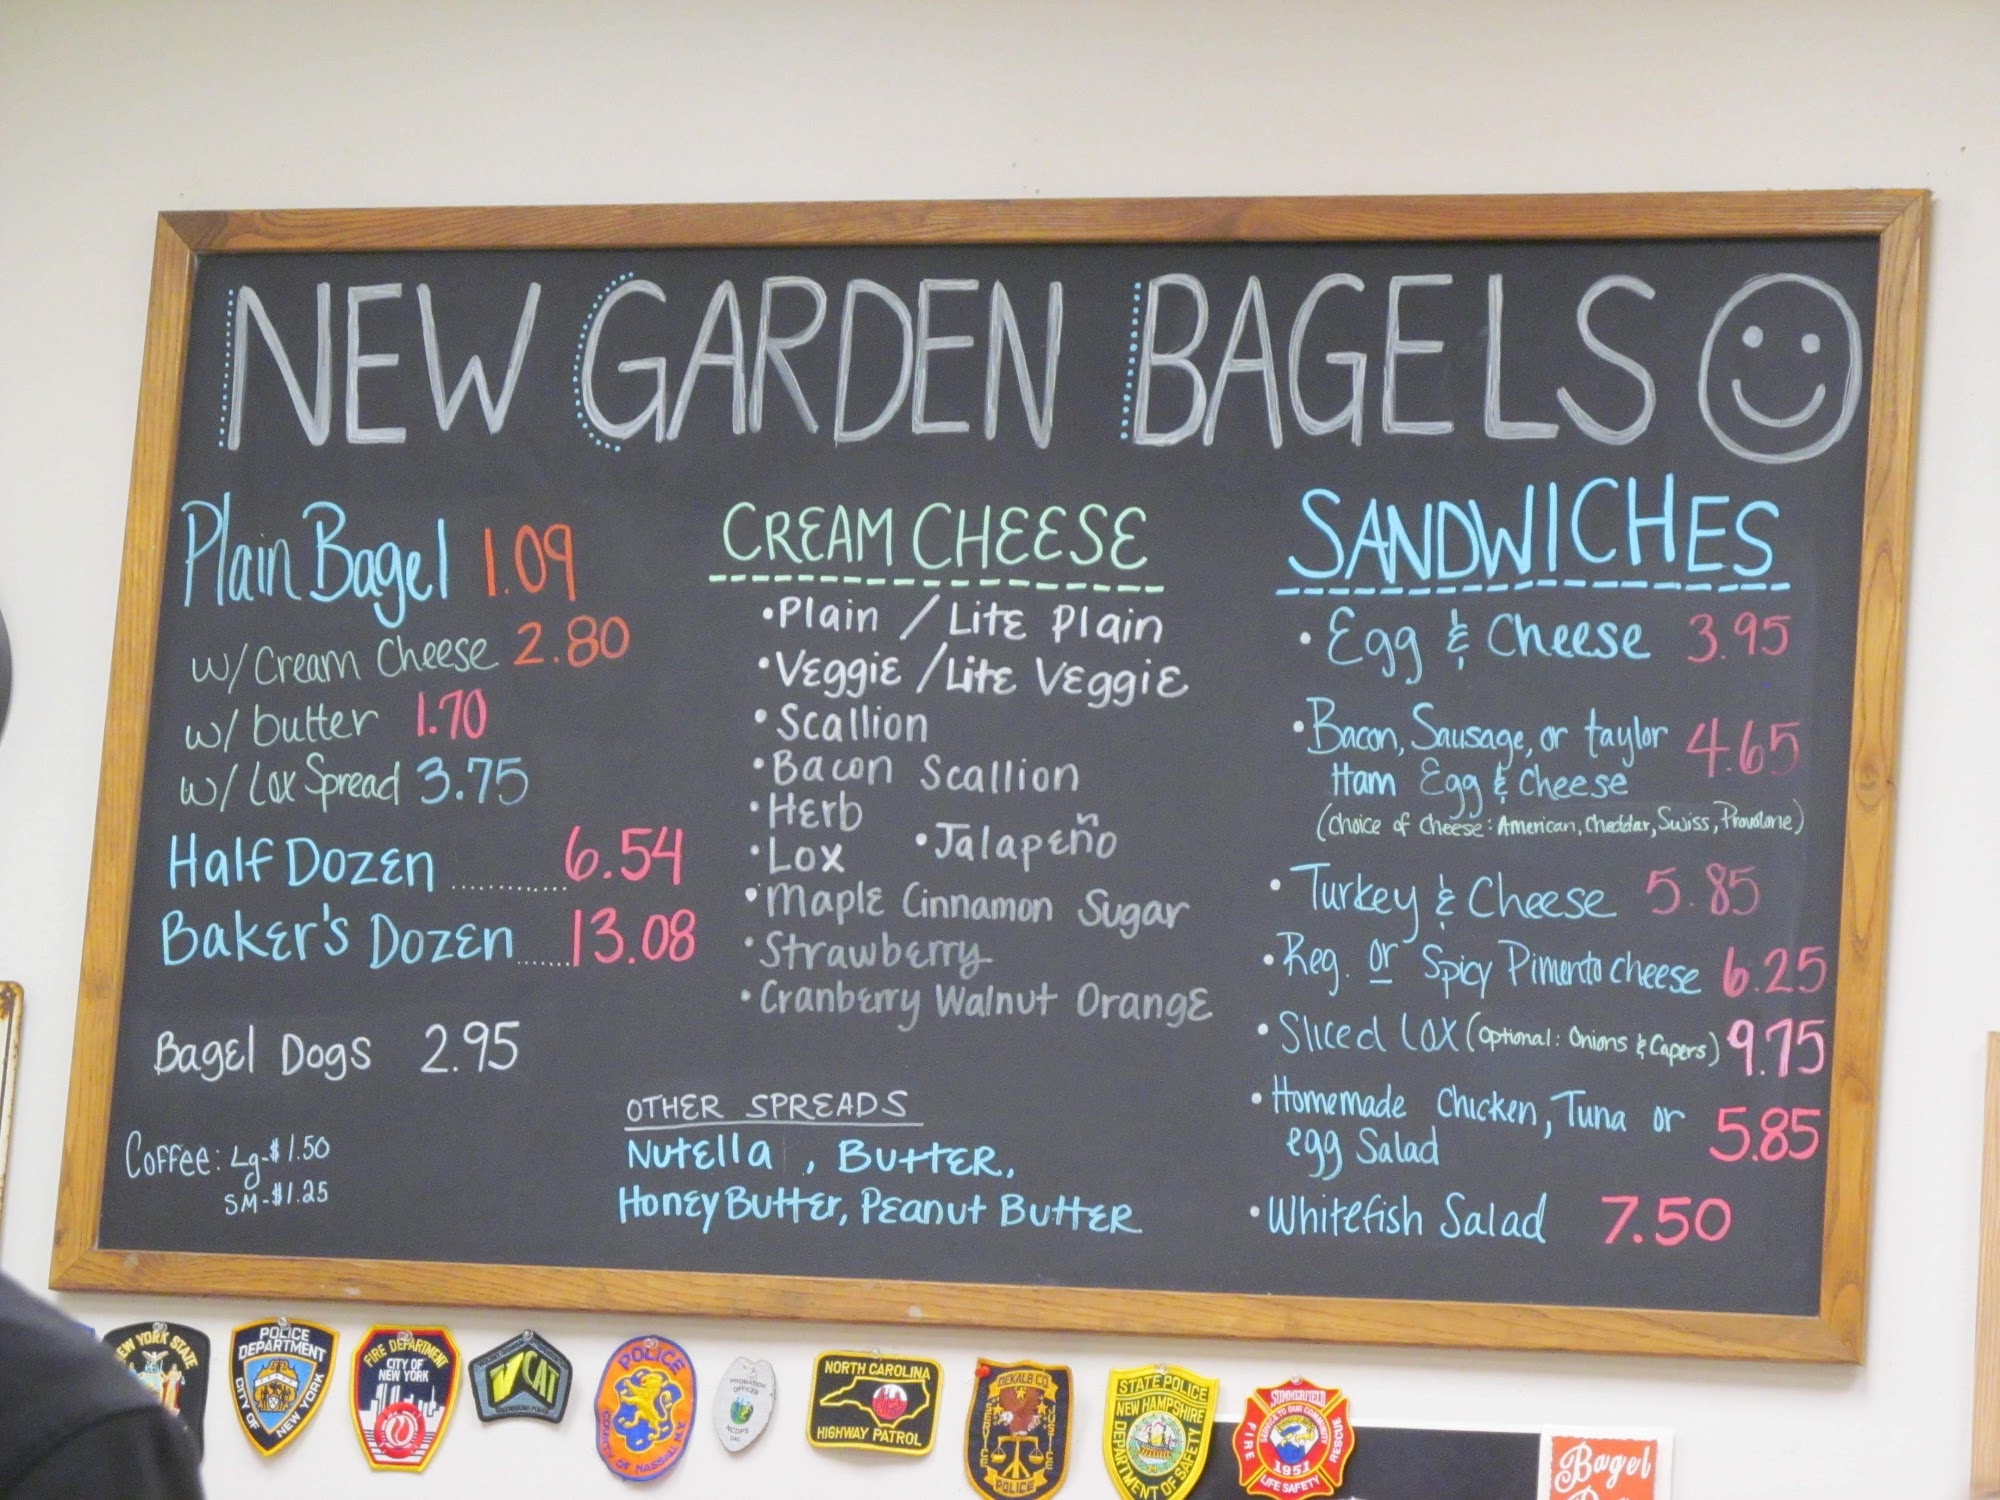 NEW GARDEN BAGELS
Plain Bagel 1.09
w/ Cream Cheese 2.80
w/ butter 1.70
w/ Lox Spread 3.75
Half Dozen ............ 6.54
Baker's Dozen ...... 13.08
Bagel Dogs 2.95
Coffee: Lg-$1.50
SM-$1.25
CREAM CHEESE
• Plain / Lite Plain
• Veggie / Lite Veggie
• Scallion
• Bacon Scallion
• Herb
• Lox • Jalapeño
• Maple Cinnamon Sugar
• Strawberry
• Cranberry Walnut Orange
OTHER SPREADS
Nutella, Butter,
Honey Butter, Peanut Butter
SANDWICHES
• Egg & Cheese 3.95
• Bacon, Sausage, or taylor 4.65
Ham Egg & Cheese
(choice of cheese: American, Cheddar, Swiss, Provolone)
• Turkey & Cheese 5.85
• Reg. or Spicy Pimento cheese 6.25
• Sliced Lox (Optional: Onions & Capers) 9.75
• Homemade Chicken, Tuna or 5.85
egg Salad
• Whitefish Salad 7.50
NEW YORK STATE
POLICE
DEPARTMENT
CITY OF
NEW YORK
FIRE DEPARTMENT
CITY OF
NEW YORK
VCAT
POLICE
COUNTY OF NASSAU, N.Y.
PROBATION
OFFICER
NCDPS
NORTH CAROLINA
HIGHWAY PATROL
DEKALB CO.
SERVICE
JUSTICE
POLICE
STATE POLICE
NEW HAMPSHIRE
DEPARTMENT OF SAFETY
SUMMERFIELD
SERVICE TO OUR COMMUNITY
FIRE
RESCUE
1951
LIFE SAFETY
Bagel